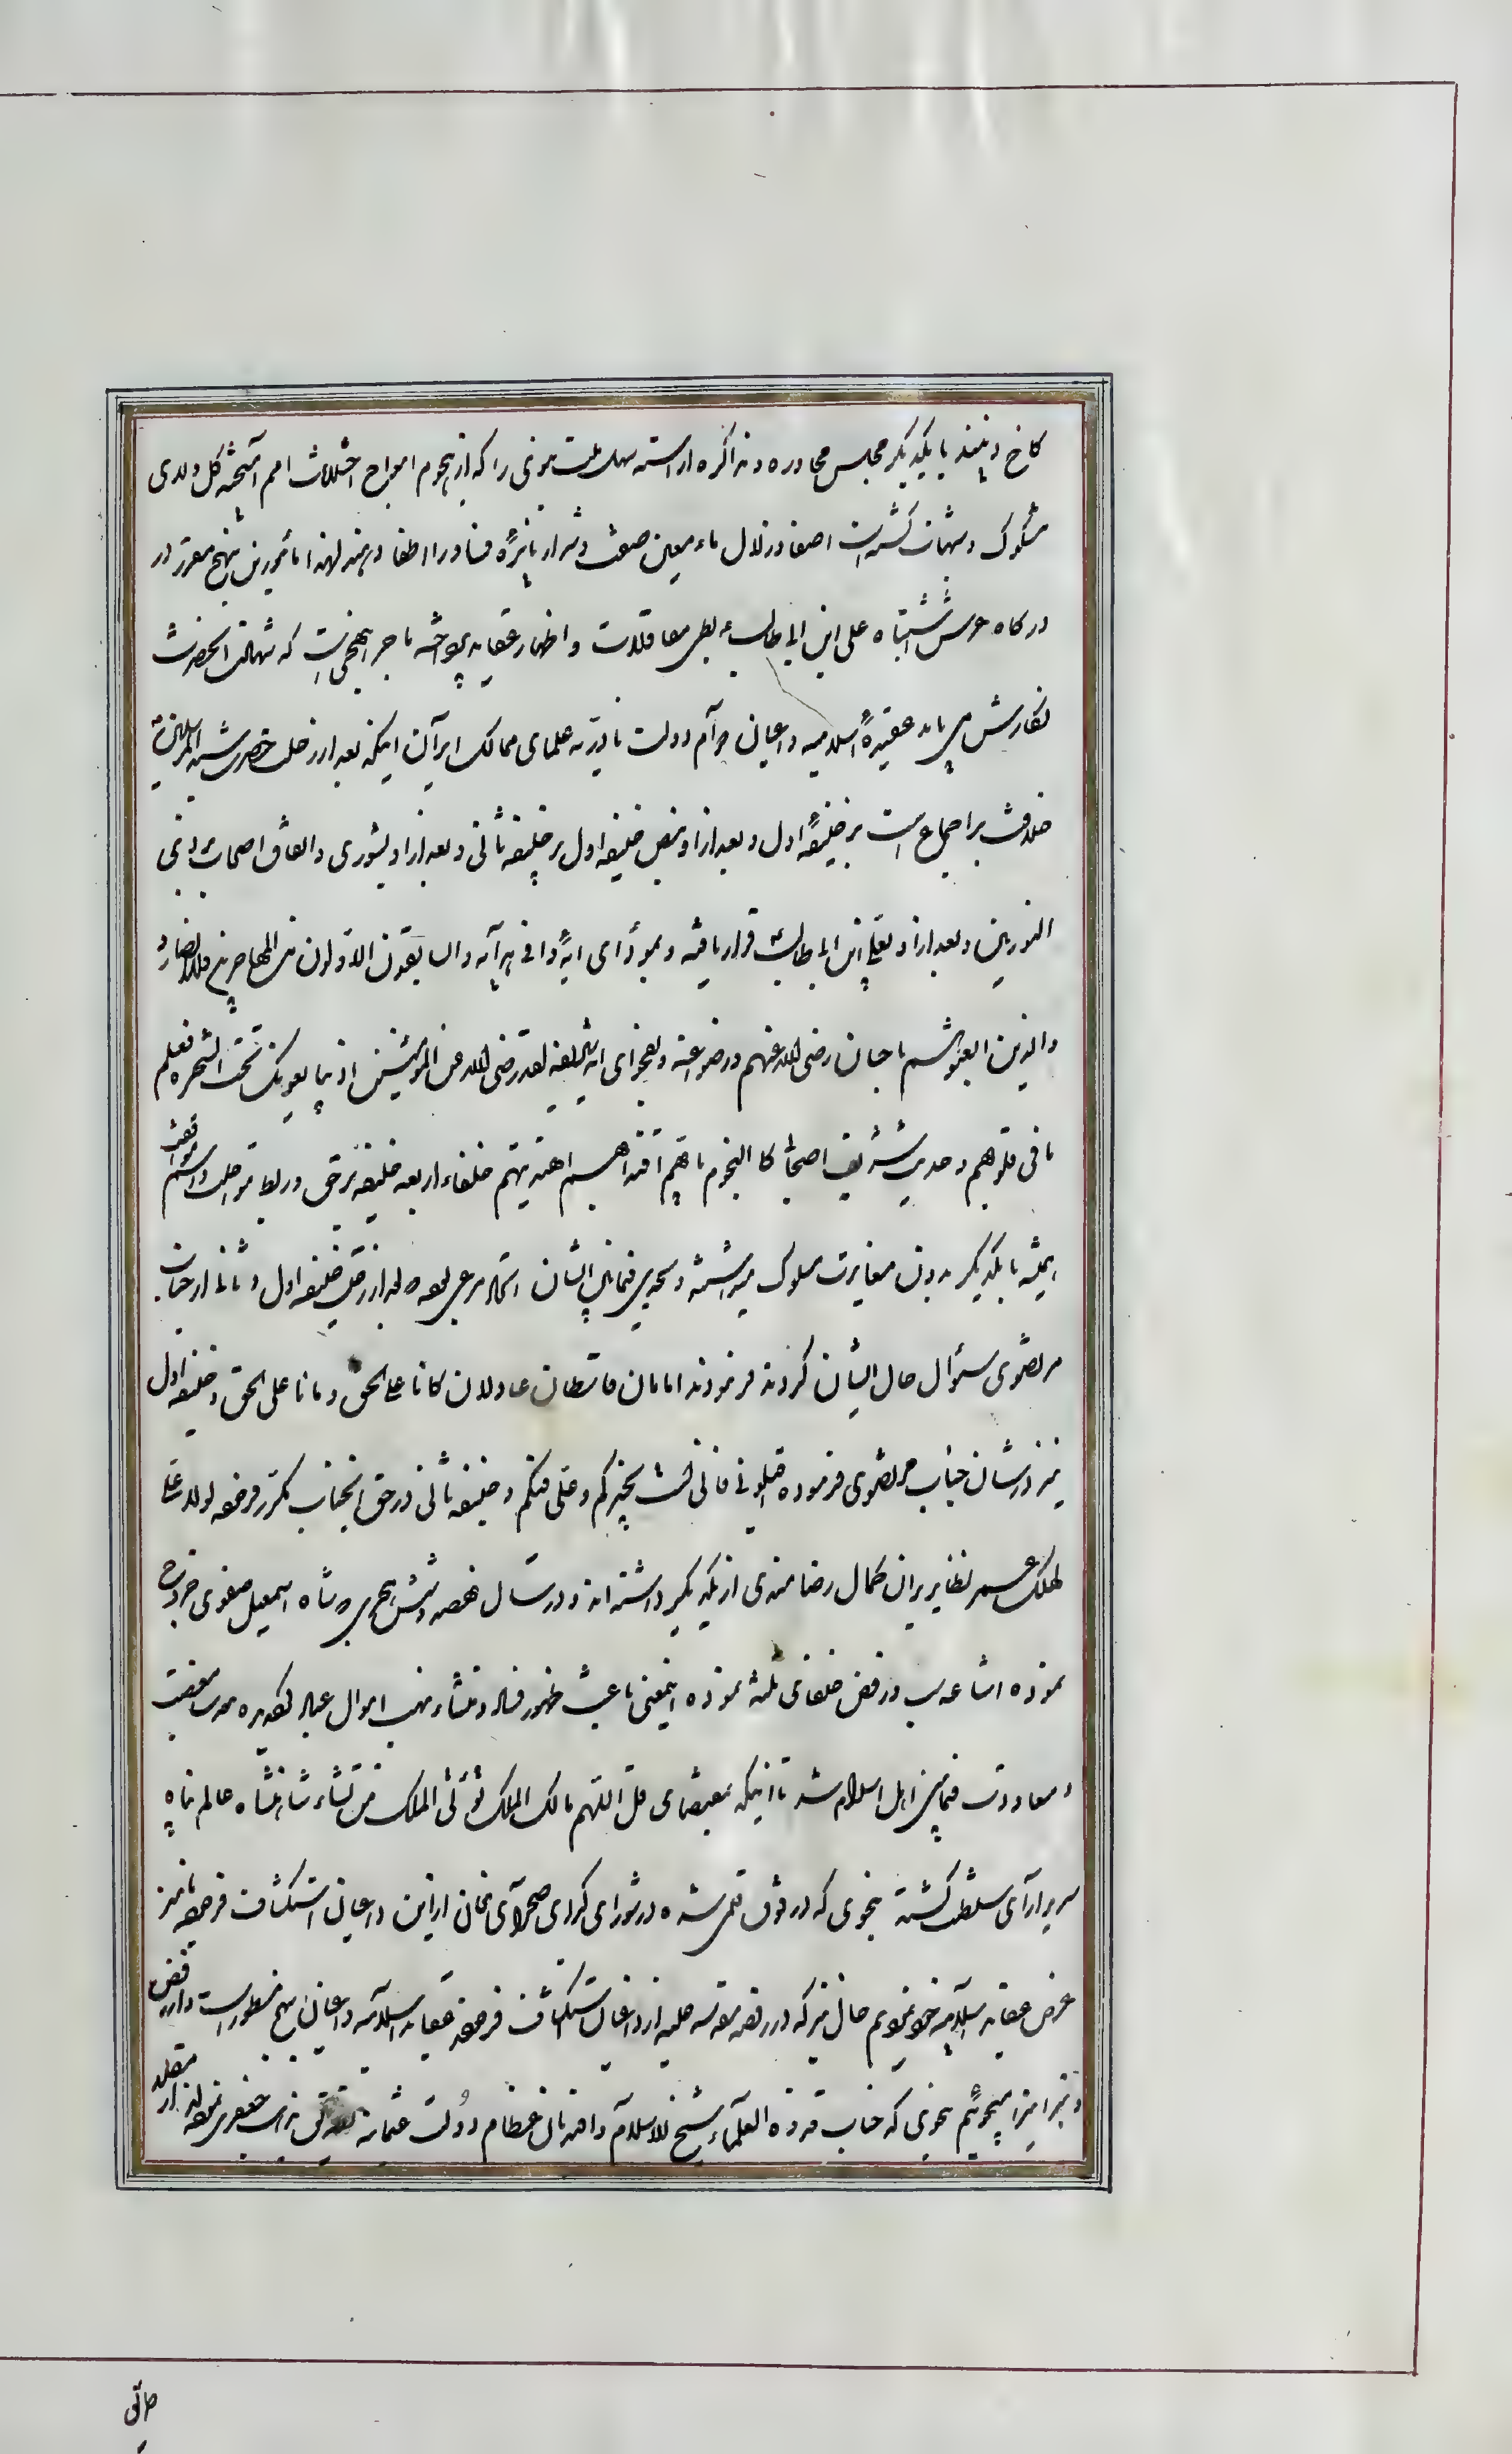 کاخ دینند با یکدیگر مجلس محاوره و مذاکره اراسته سهل ملت نبوی را که از هجوم امواج اختلاف امم آمیخته کل و لای
شکوک و شبهات گشته است اصفا و زلال ماء معین صفت و شرار نایرهٔ فساد را اطفا دهند لهذا مأمورین بنهج مقرر در
درکاه عرش اشتباه علی ابن ابی طالب ع بطی مقاولات و اظهار عقاید پرداخته ماجرا بنهجی است که شهادت انحضرت
نگارش می یابد عقیدهٔ اسلامیه داعیان دوام دولت نادریه علمای ممالک ایران اینکه بعد از رحلت حضرت سید المرسلین
خلافت براجماع است بر خلیفهٔ اول و بعد ازاو بنص خلیفه اول بر خلیفه ثانی و بعد ازاو بشوری و اتفاق اصحاب بر ذی
النورین و بعد ازاو بعلی ابن ابی طالب قرار یافته و بمؤدای ایهٔ وافی هدایه والسابقون الاولون من المهاجرین والانصار و
والذین اتبعوهم باحسان رضی الله عنهم ورضوا عنه و بفحوای ایه شریفه لقد رضی الله عن المؤمنین اذ یبایعونک تحت الشجره فعلم
ما فی قلوبهم و حدیث شریف اصحابی کالنجوم بایهم اقتدیتم اهتدیتم خلفاء اربعه خلیفه برحق و ربط مواصلت و مراسم موافقت
همیشه با یکدیگر بدون مغایرت سلوک میداشته و بحدی فیمابین ایشان اتحاد مرعی بوده که بعد از رحلت خلیفه اول و ثانی از جناب
مرتضوی سئوال حال ایشان کردند فرمودند امامان قاسطان عادلان کانا علی الحق و ماتا علی الحق و خلیفه اول
نیز در شان جناب مرتضوی فرموده قیلونی فانی لست بخیرکم و علی فیکم و خلیفه ثانی در حق انجناب مکرر فرموده لولا علی
لهلک عمر نظایر بران کمال رضامندی از یکدیگر داشته اند و در سال نهصد و شش هجری که شاه اسمعیل صفوی خروج
نموده اشاعه سب و رفض خلفای ثلثه نموده اینمعنی باعث ظهور فساد و منشاء نهب اموال عباد گردیده مورث بغضت
و معاودت فیمابین اهل اسلام شد تا اینکه بمقتضای قل اللهم مالک الملک تؤتی الملک من تشاء شاهنشاه عالم پناه
سریر ارای سلطنت گشته بنحوی که در فوق قلمی شده در شورای کبرای صحرای مغان ازاین داعیان استکشاف فرموده ما نیز
عرض عقاید اسلامیه خود نمودیم حال نیز که در روضه مقدسه علیه از داعیان استکشاف فرموده عقاید اسلامیه داعیان بنهج مسطور است و از رفض
و تبرا تبرا میجوئیم بنحوی که جناب قدوة العلماء شیخ الاسلام و افندیان عظام دولت عثمانیه تصدیق مذهب جعفری نموده اند از مقلد